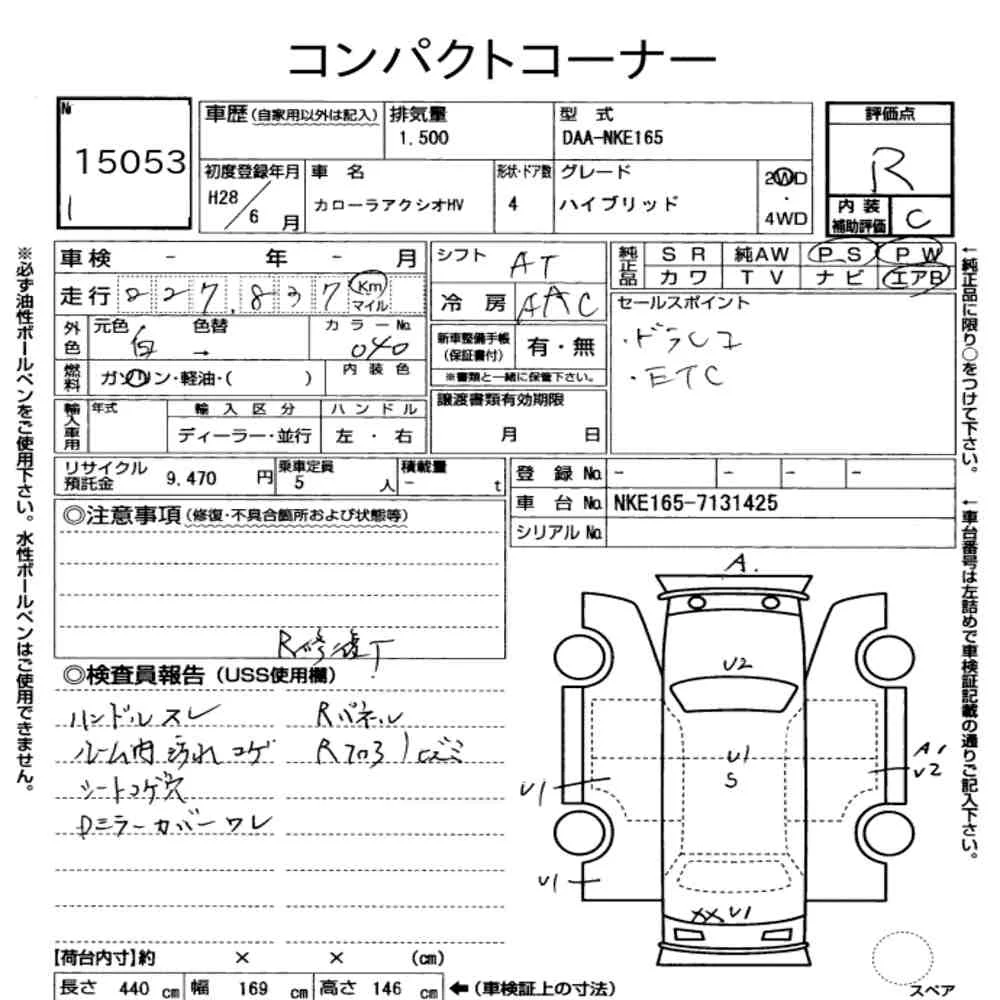 コンパクトコーナー
№
15053
車歴(自家用以外は記入)
排気量
1.500
型 式
DAA-NKE165
評価点
R
内 装
補助評価
C
初度登録年月
H28/6月
車 名
カローラアクシオHV
形状・ドア数
4
グレード
ハイブリッド
2WD
・
4WD
車検 - 年 - 月
走行 227,837 Km
マイル
シフト
AT
冷 房
AAC
純正品
S R 純AW P S P W
カ ワ T V ナ ビ エアB
セールスポイント
・ドラレコ
・ETC
外色
元色 色替
白 →
カ ラ ー №
040
燃料
ガソリン・軽油・( )
内 装 色
新車整備手帳
(保証書付)
有・無
※書類と一緒に保管下さい。
輸入車用
年式
輸 入 区 分
ディーラー・並行
ハ ン ド ル
左 ・ 右
譲渡書類有効期限
月 日
リサイクル
預託金
9.470 円
乗車定員
5 人
積載量
- t
登 録 № - - - -
車 台 № NKE165-7131425
シリアル №
◎注意事項(修復・不具合箇所および状態等)
R修復T
◎検査員報告(USS使用欄)
ハンドルスレ
ルーム内 汚れ コゲ
シートコゲ穴
Dミラーカバーワレ
Rパネル
Rフロア
A.
U2
U1
S
A1
U2
U1
U1
XX U1
スペア
【荷台内寸】約 × × (cm)
長さ 440 cm 幅 169 cm 高さ 146 cm ←(車検証上の寸法)
※必ず油性ボールペンをご使用下さい。水性ボールペンはご使用できません。
←純正品に限り○をつけて下さい。
←車台番号は左詰めで車検証記載の通りご記入下さい。